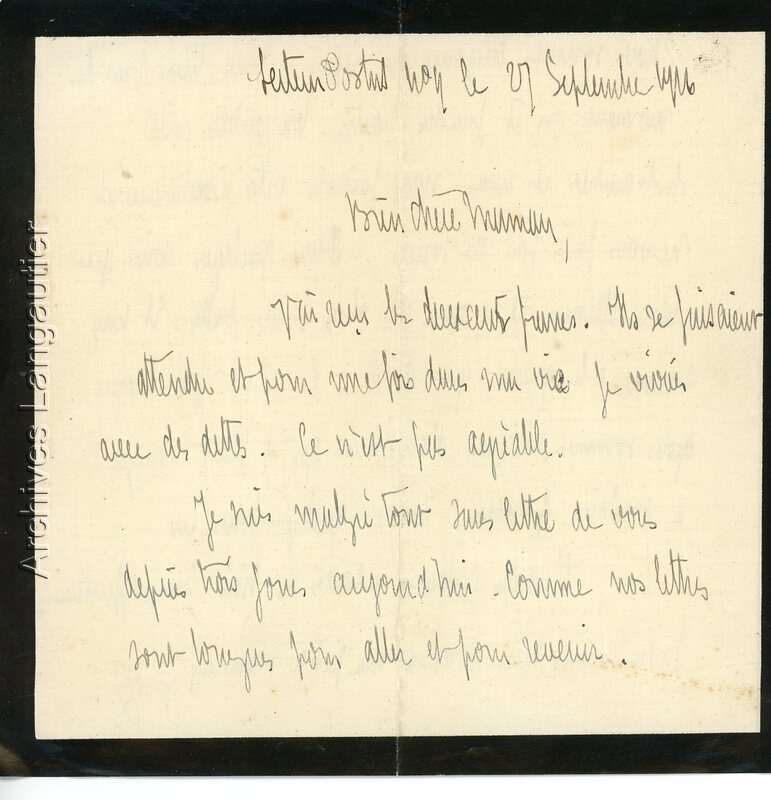 Secteur Postal le 27 Septembre 1916
Bien chère Maman,
J'ai reçu les deux cents francs. Ils se faisaient
attendre et pour une fois dans ma vie je vivais
avec des dettes. Ce n'est pas agréable.
Je suis malgré tout sans lettre de vous
depuis trois jours aujourd'hui. Comme nos lettres
sont longues pour aller et pour revenir.
Archives Langautier